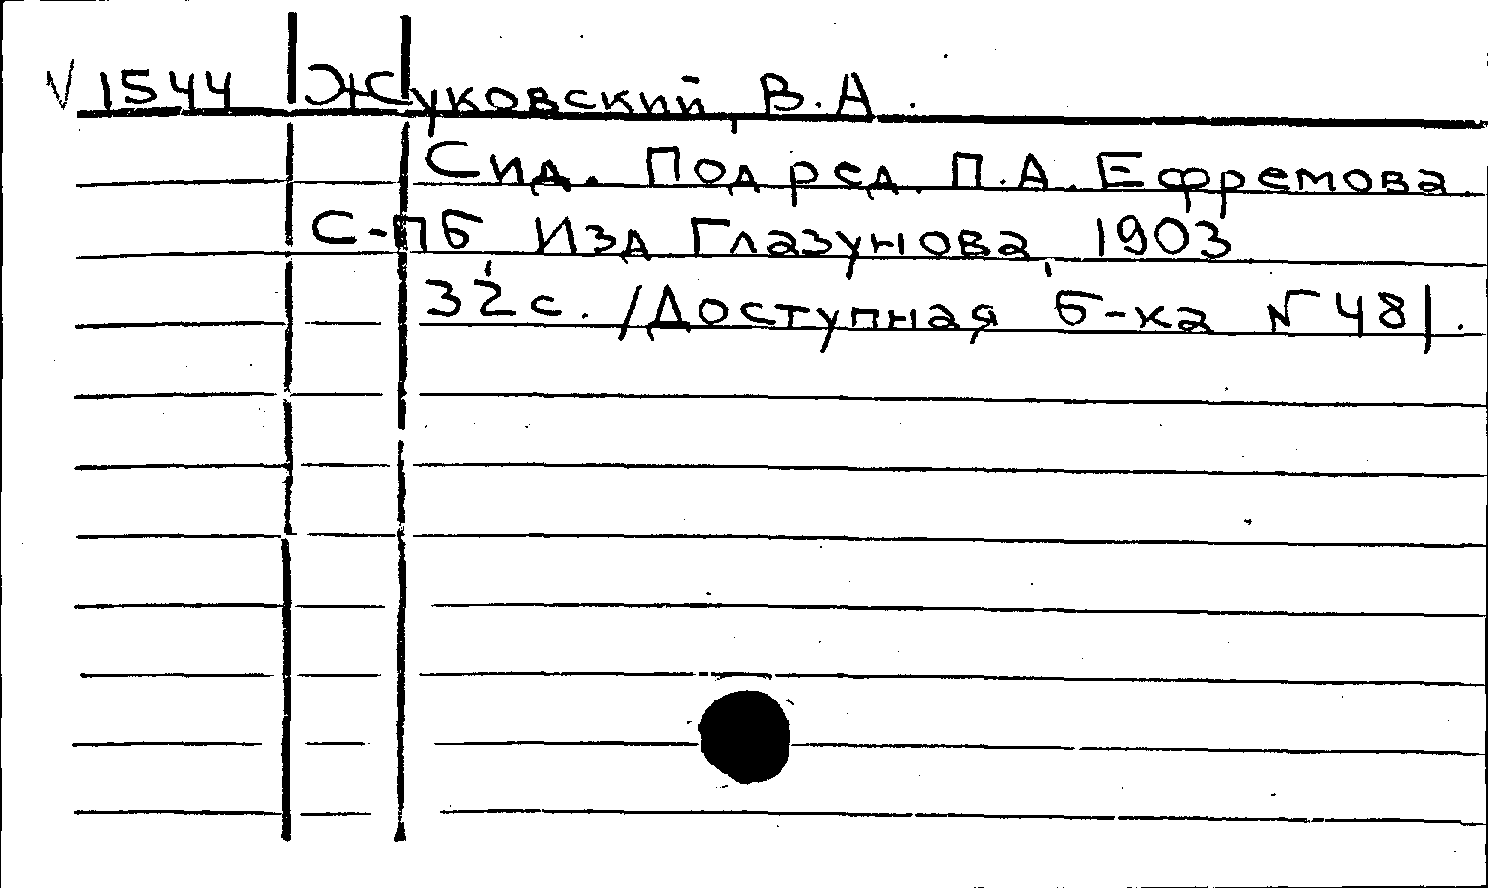 √ 1544 Жуковский, В.А.
Сид. Под ред. П.А. Ефремова.
С-ПБ, Изд Глазунова, 1903
32 с. /Доступная б-ка № 48/.